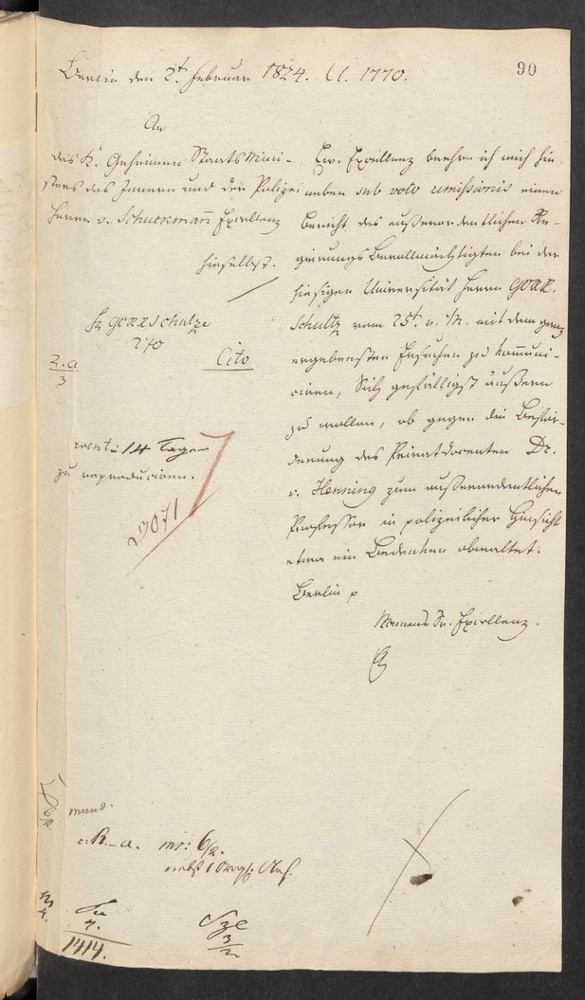 90
Berlin den 2t. Februar 1824. U. 1770.
An
des K. Geheimen Staats Mini-
sters des Innern und der Polizei
Herrn v. Schuckmann Excellenz
hieselbst.
H GORR Schultze
Cito
2.a
3
14 Tagen
zu reproduciren.
Ew. Excellenz beehre ich mich hie-
neben sub voto remissionis einen
Bericht des außerordentlichen Re-
gierungs Bevollmächtigten bei der
hiesigen Universität Herrn GORR.
Schultz vom 25t. v. M. mit dem ganz
ergebensten Ersuchen zu kommuni-
ciren, Sich gefälligst äußern
zu wollen, ob gegen die Beför-
derung des Privatdocenten Dr.
v. Henning zum außerordentlichen
Professor in polizeilicher Hinsicht
etwa ein Bedenken obwaltet.
Berlin p
Namens Sr. Excellenz.
mund.
6/2.
nebst 1 Orig.
3
2
1414.